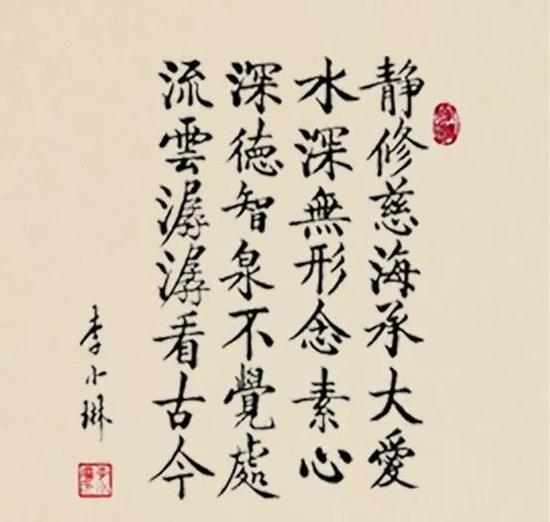 静修慈海承大愛
水深無形念素心
深德智泉不覺處
流雲潺潺看古今
李小琳